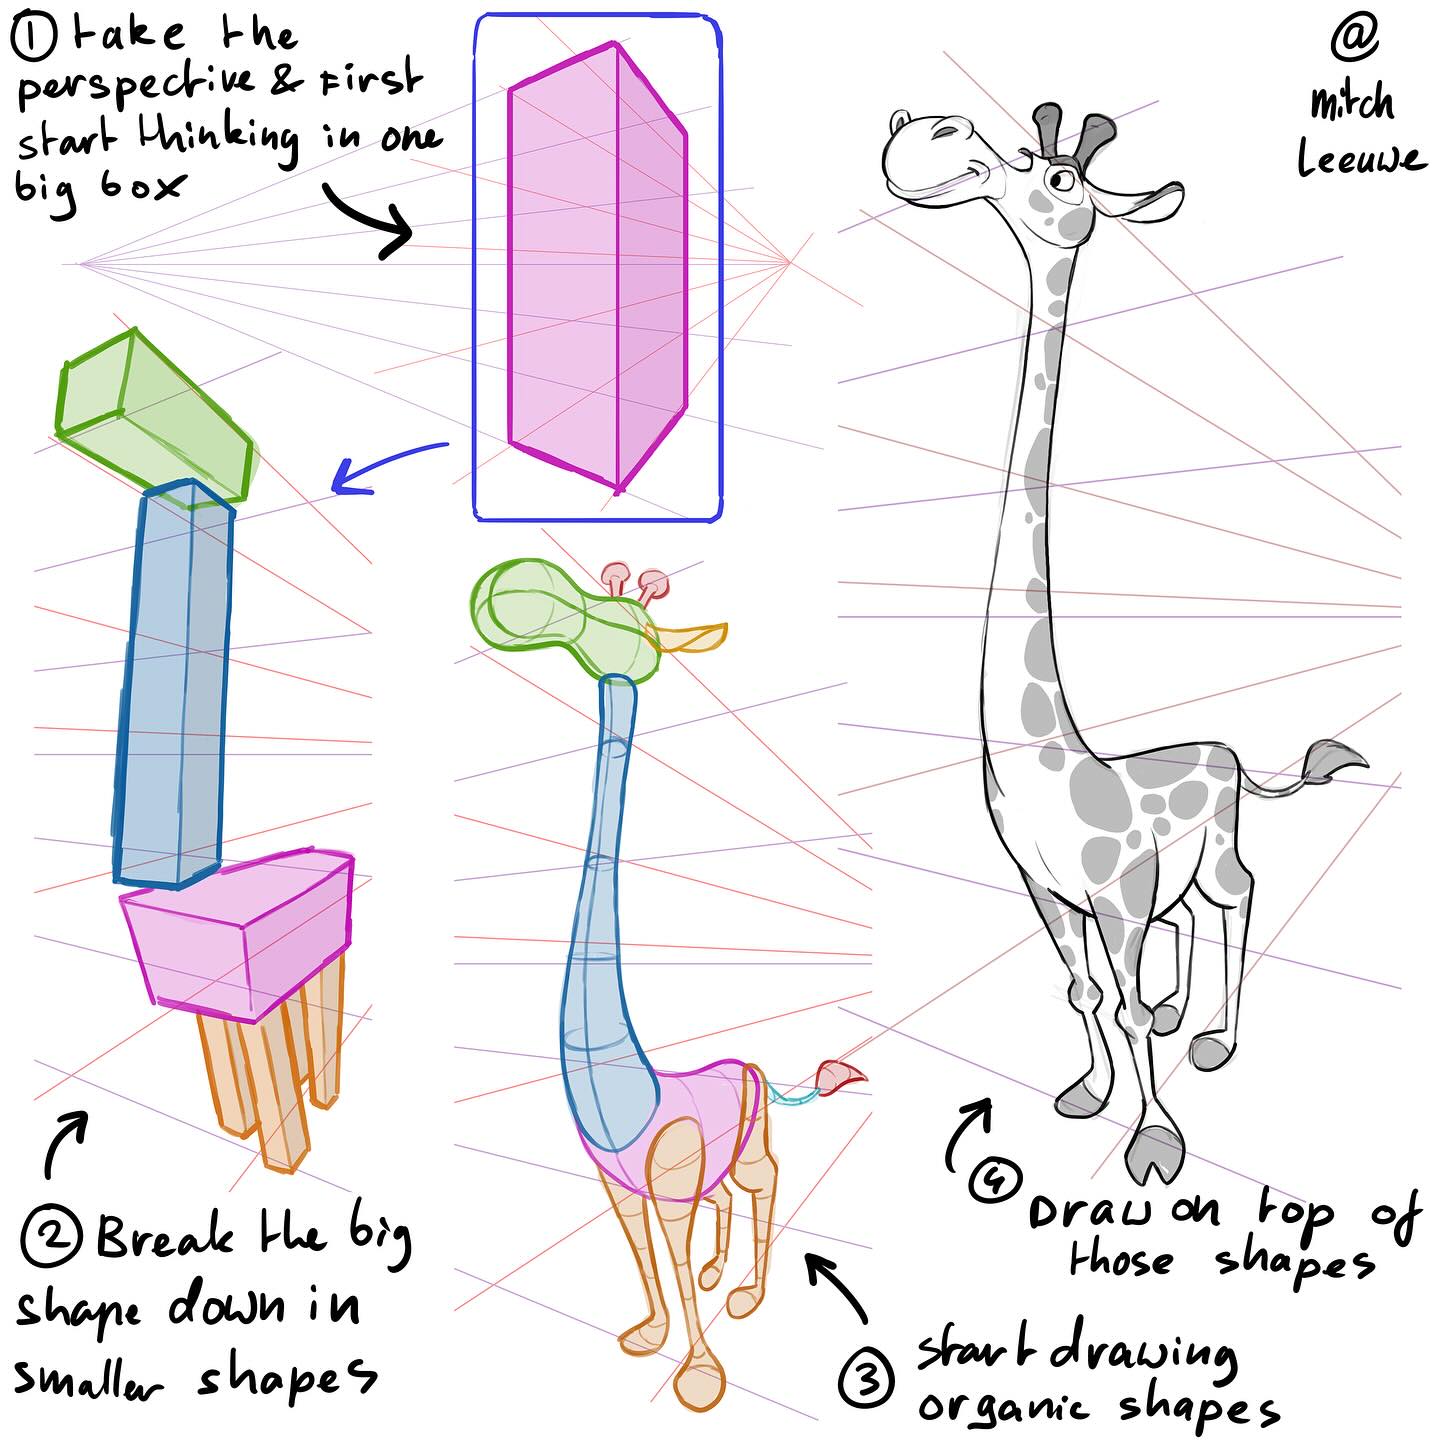 ① take the
perspective & First
start thinking in one
big box
@
mitch
Leeuwe
② Break the big
shape down in
smaller shapes
③ start drawing
organic shapes
④ Draw on top of
those shapes